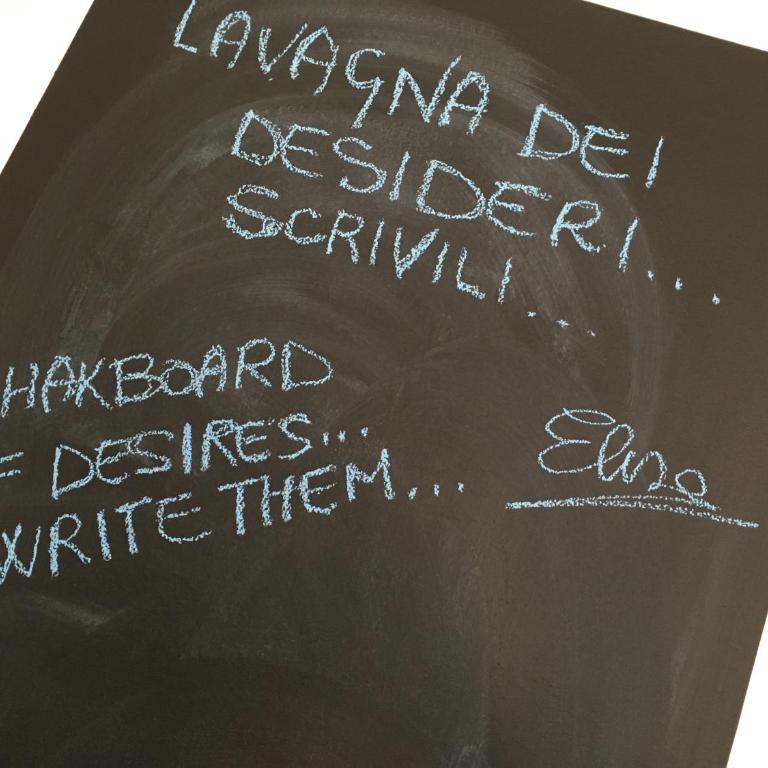 LAVAGNA DEI
DESIDERI...
SCRIVILI...
HAKBOARD
F DESIRES...
WRITE THEM...
Elisa